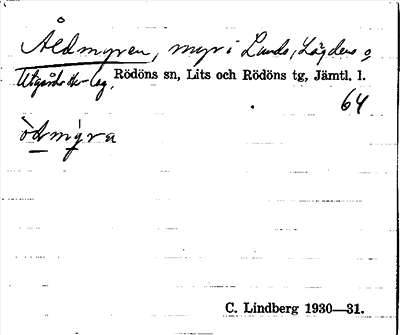 Åldmyren, myr i Lunds, Lägdens o
Utgårds ägor. Rödöns sn, Lits och Rödöns tg, Jämtl. l.
64
òdmy̆ra
C. Lindberg 1930—31.